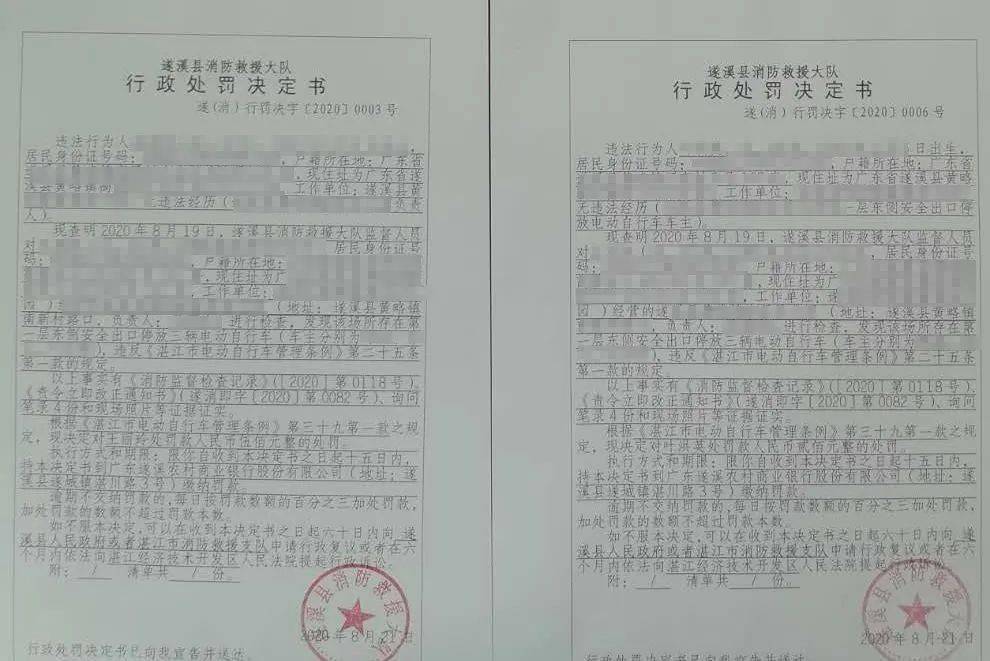 遂溪县消防救援大队
行政处罚决定书
遂(消)行罚决字〔2020〕0003号
违法行为人
居民身份证号码: ,户籍所在地:广东省
,现住址为广东省遂
溪县黄略镇 ,工作单位:遂溪县黄
无违法经历( 负责
人)。
现查明2020年8月19日,遂溪县消防救援大队监督人员
对 居民身份证号
码: 户籍所在地:
,现住址为广
,工作单位:
(地址:遂溪县黄略镇
南新村路口,负责人: 进行检查,发现该场所存在第
一层东侧安全出口停放三辆电动自行车(车主分别为
),违反《湛江市电动自行车管理条例》第二十五条
第一款的规定。
以上事实有《消防监督检查记录》(〔2020〕第0118号)、
《责令立即改正通知书》(遂消即字〔2020〕第0082号)、询问
笔录4份和现场照片等证据证实。
根据《湛江市电动自行车管理条例》第三十九第一款之规
定,现决定对王丽玲处罚款人民币伍佰元整的处罚。
执行方式和期限:限你自收到本决定书之日起十五日内,
持本决定书到广东遂溪农村商业银行股份有限公司(地址:遂
溪县遂城镇湛川路3号)缴纳罚款。
逾期不交纳罚款的,每日按罚款数额的百分之三加处罚款,
加处罚款的数额不超过罚款本数。
如不服本决定,可以在收到本决定书之日起六十日内向 遂
溪县人民政府或者湛江市消防救援支队申请行政复议或者在六
个月内依法向湛江经济技术开发区人民法院提起行政诉讼。
附: / 清单共 / 份。
遂溪县消防救援大队
2020年8月21日
行政处罚决定书已向我宣告并送达。
遂溪县消防救援大队
行政处罚决定书
遂(消)行罚决字〔2020〕0006号
违法行为人 日出生,
居民身份证号码: ,户籍所在地:广东省
,现住址为广东省遂溪县黄略
,工作单位:
无违法经历( 一层东侧安全出口停
放电动自行车车主)。
现查明2020年8月19日,遂溪县消防救援大队监督人员
对 ( ,居民身份证号
码: 户籍所在地:
,现住址为广
,工作单位:遂
)经营的遂 (地址:遂溪县黄略镇
,负责人: 进行检查,发现该场所存在第
一层东侧安全出口停放三辆电动自行车(车主分别为
),违反《湛江市电动自行车管理条例》第二十五条
第一款的规定。
以上事实有《消防监督检查记录》(〔2020〕第0118号)、
《责令立即改正通知书》(遂消即字〔2020〕第0082号)、询问
笔录4份和现场照片等证据证实。
根据《湛江市电动自行车管理条例》第三十九第一款之规
定,现决定对叶洪英处罚款人民币贰佰元整的处罚。
执行方式和期限:限你自收到本决定书之日起十五日内,
持本决定书到广东遂溪农村商业银行股份有限公司(地址:遂
溪县遂城镇湛川路3号)缴纳罚款。
逾期不交纳罚款的,每日按罚款数额的百分之三加处罚款,
加处罚款的数额不超过罚款本数。
如不服本决定,可以在收到本决定书之日起六十日内向 遂
溪县人民政府或者湛江市消防救援支队申请行政复议或者在六
个月内依法向湛江经济技术开发区人民法院提起行政诉讼。
附: / 清单共 / 份。
遂溪县消防救援大队
2020年8月21日